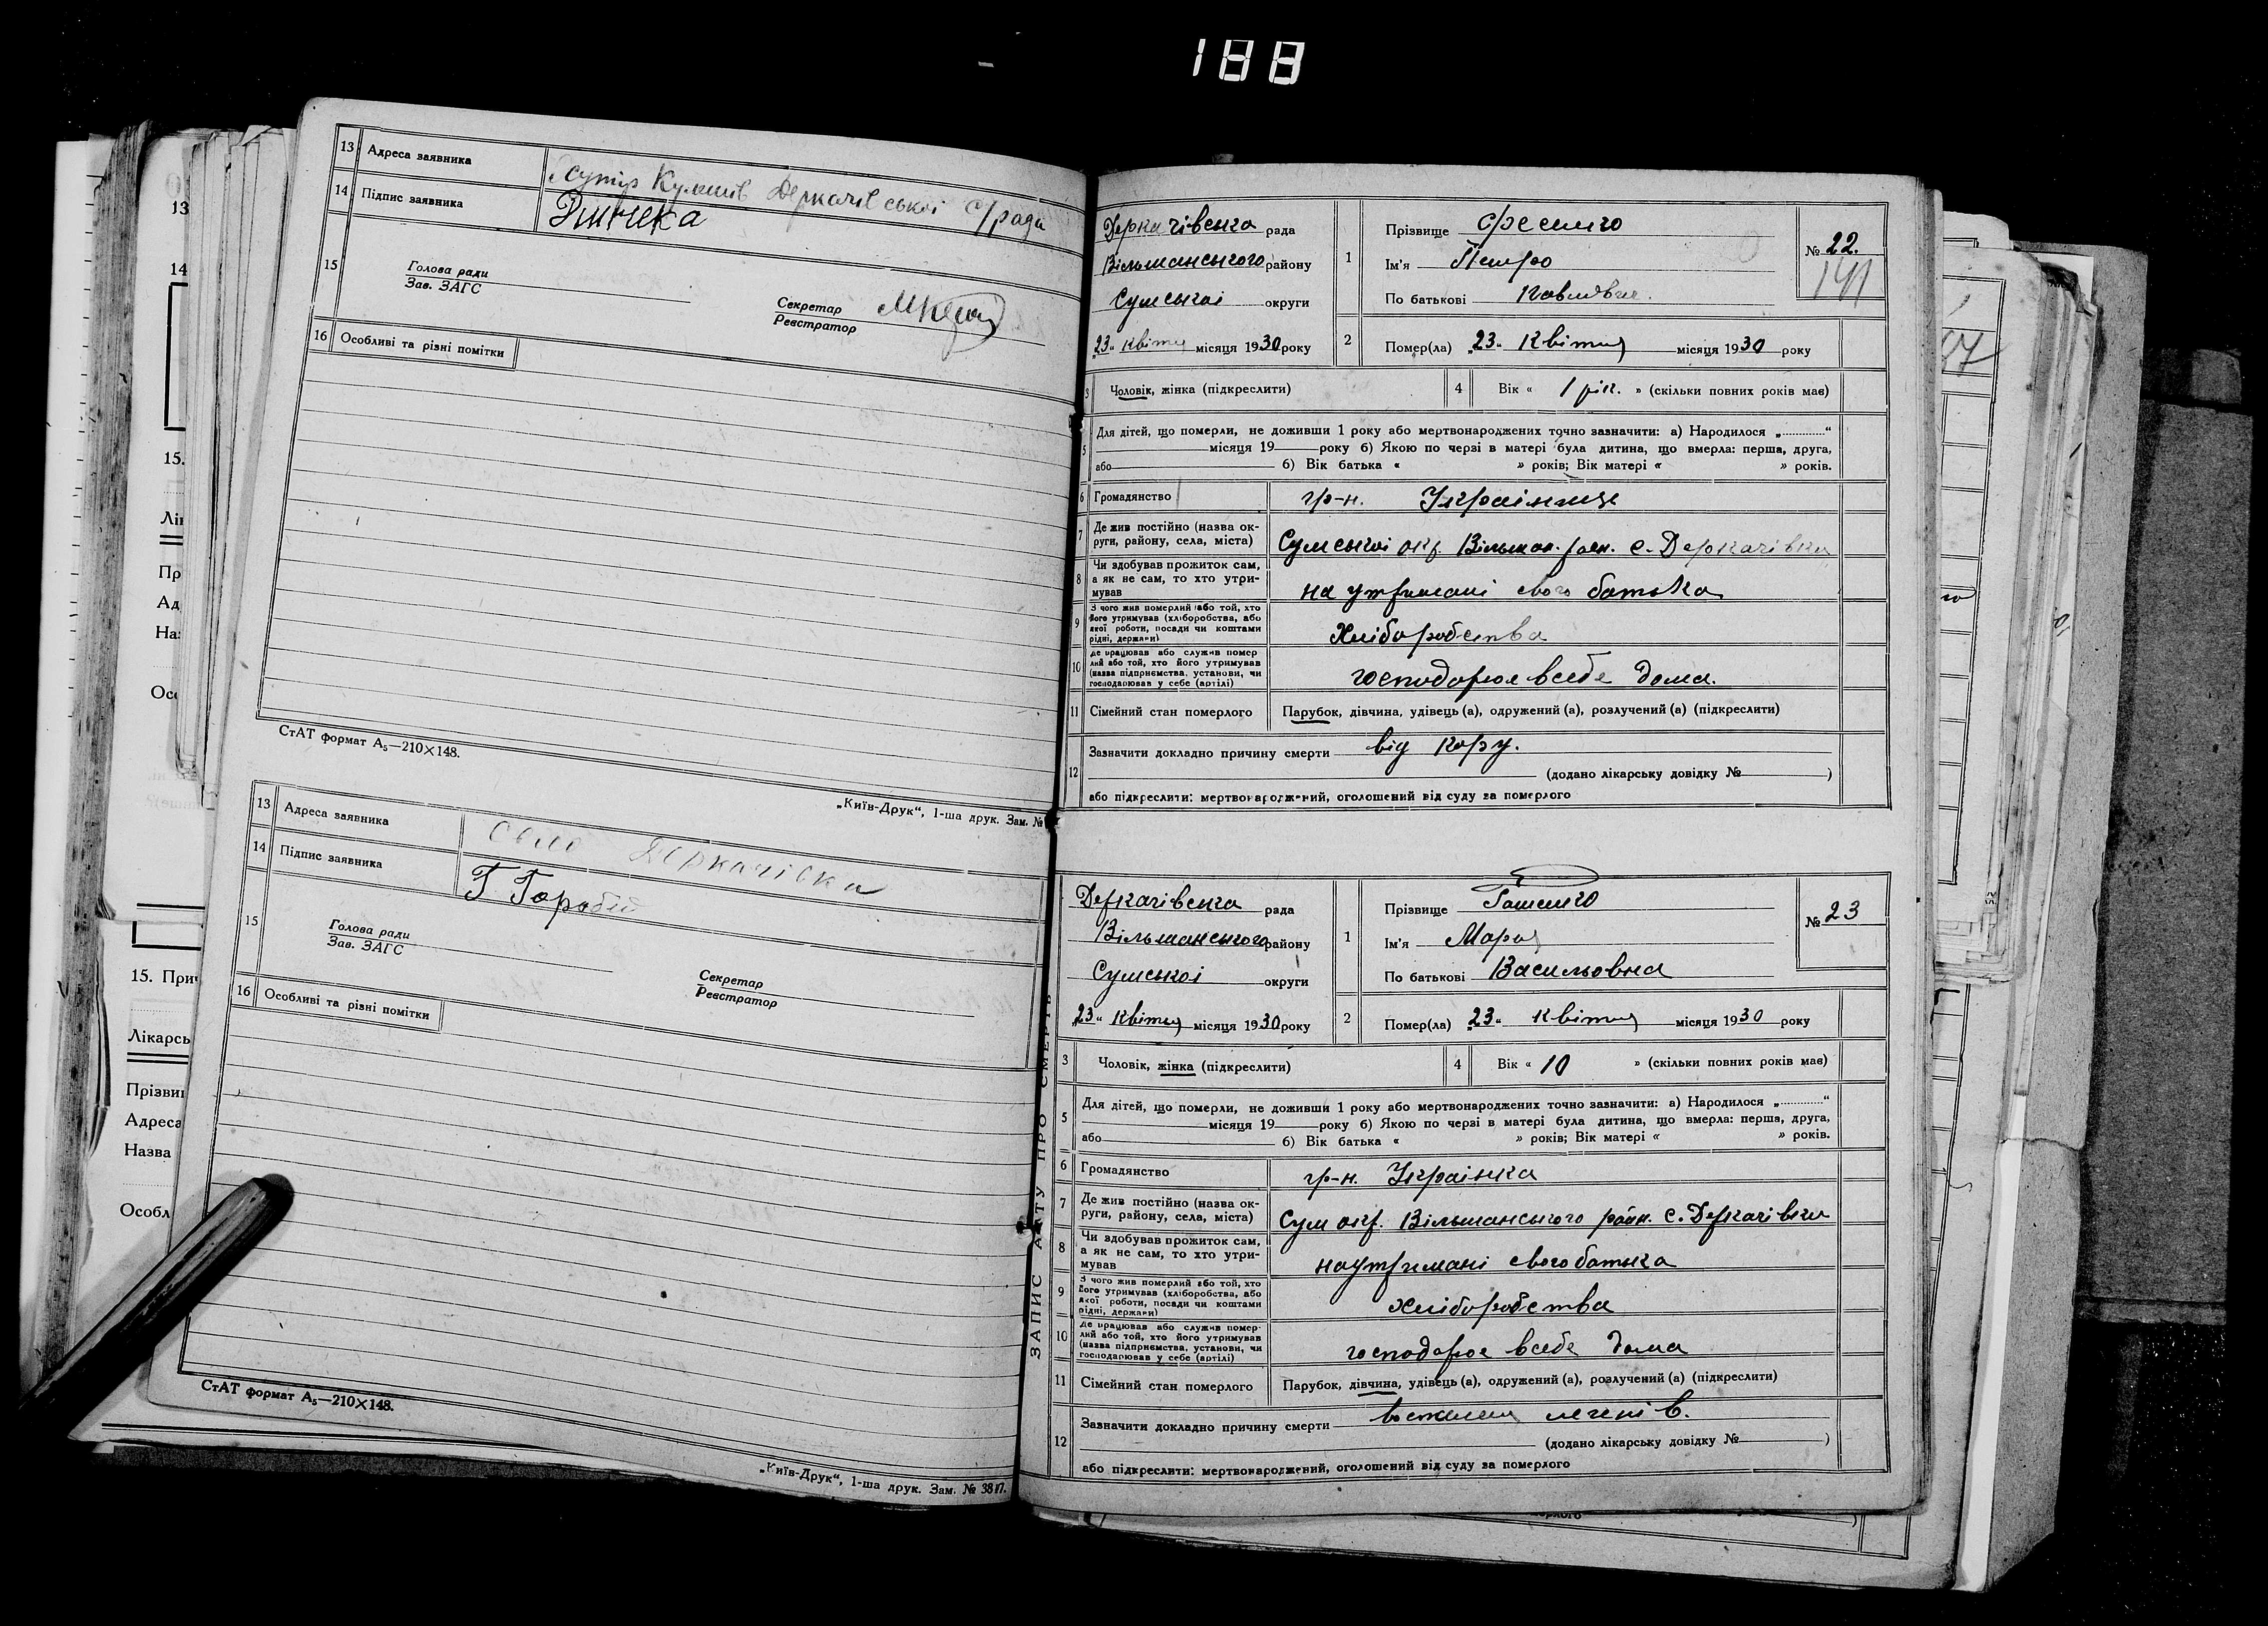 188
13 Адреса заявника Хутір Кулішів Деркачівської с/ради
14 Підпис заявника
15 Голова ради
Зав. ЗАГС
Секретар
Реєстратор
16 Особливі та різні помітки
СтАТ формат А₅—210×148.
„Київ-Друк“, 1-ша друк. Зам. №
13 Адреса заявника Село Деркачівка
14 Підпис заявника Г Горобій
15 Голова ради
Зав. ЗАГС
Секретар
Реєстратор
16 Особливі та різні помітки
СтАТ формат А₅—210×148.
„Київ-Друк“, 1-ша друк. Зам. № 3817.
ЗАПИС АКТУ ПРО СМЕРТЬ
Деркачівська рада
Вільшанського району
Сумської округи
„23“ квітня місяця 1930 року
1 Прізвище
Ім'я Петро
По батькові
№ 22.
141
2 Помер(ла) „23“ квітня місяця 1930 року
3 Чоловік, жінка (підкреслити)
4 Вік « 1 рік. » (скільки повних років має)
5 Для дітей, що померли, не доживши 1 року або мертвонароджених точно зазначити: а) Народилося „............“
місяця 19 року б) Якою по черзі в матері була дитина, що вмерла: перша, друга,
або б) Вік батька « » років; Вік матері « » років.
6 Громадянство гр-н. Українец
7 Де жив постійно (назва ок-
руги, району, села, міста) Сумської окр. Вільшан. роен. с. Деркачівка
8 Чи здобував прожиток сам,
а як не сам, то хто утри-
мував на утримані свого батька
9 З чого жив померлий або той, хто
його утримував (хліборобства, або
якої роботи, посади чи коштами
рідні, держави) Хліборобства
10 Де працював або служив помер
лий або той, хто його утримував
(назва підприємства, установи, чи
господарював у себе (артілі) господорює всебе дома.
11 Сімейний стан померлого Парубок, дівчина, удівець (а), одружений (а), розлучений (а) (підкреслити)
12 Зазначити докладно причину смерти від кору.
(додано лікарську довідку № )
або підкреслити: мертвонароджений, оголошений від суду за померлого
Деркачівська рада
Вільшанського району
Сумської округи
„23“ квітня місяця 1930 року
1 Прізвище
Ім'я Марія
По батькові Васильовна
№ 23
2 Помер(ла) „23“ квітня місяця 1930 року
3 Чоловік, жінка (підкреслити)
4 Вік « 10 » (скільки повних років має)
5 Для дітей, що померли, не доживши 1 року або мертвонароджених точно зазначити: а) Народилося „............“
місяця 19 року б) Якою по черзі в матері була дитина, що вмерла: перша, друга,
або б) Вік батька « » років; Вік матері « » років.
6 Громадянство гр-н. Українка
7 Де жив постійно (назва ок-
руги, району, села, міста) Сум окр. Вільшанського район. с. Деркачівки
8 Чи здобував прожиток сам,
а як не сам, то хто утри-
мував наутримані свого батька
9 З чого жив померлий або той, хто
його утримував (хліборобства, або
якої роботи, посади чи коштами
рідні, держави) хліборобства
10 Де працював або служив помер-
лий або той, хто його утримував
(назва підприємства, установи, чи
господарював у себе (артілі) господорює всебе дома
11 Сімейний стан померлого Парубок, дівчина, удівець (а), одружений (а), розлучений (а) (підкреслити)
12 Зазначити докладно причину смерти легенів.
(додано лікарську довідку № )
або підкреслити: мертвонароджений, оголошений від суду за померлого